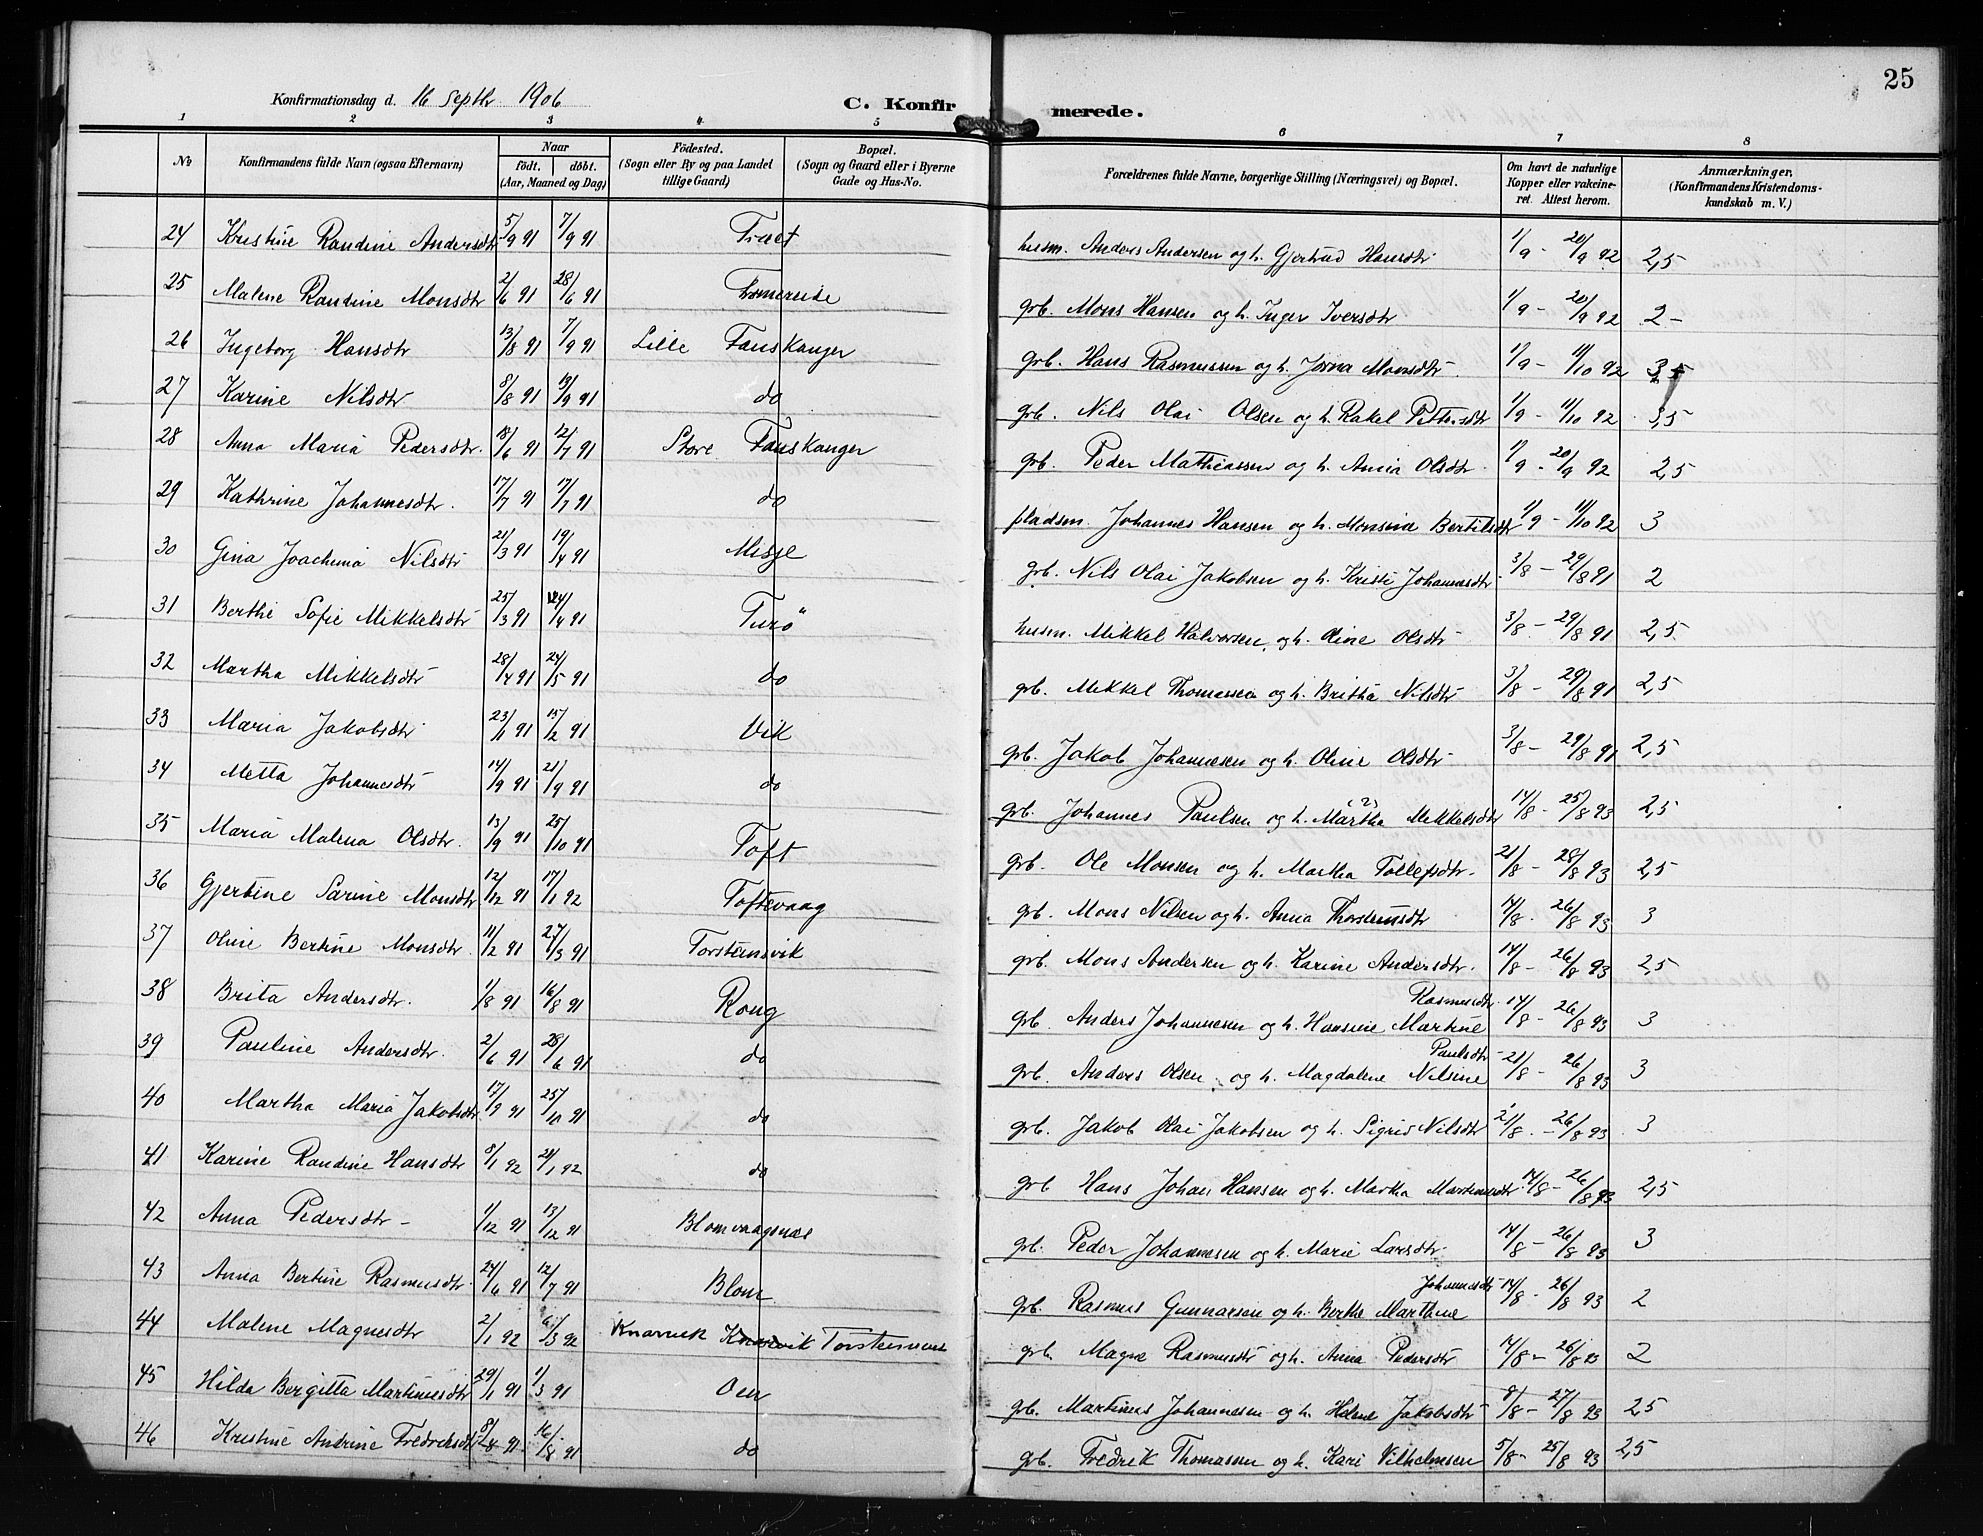 25
Konfirmationsdag d. 16 Septbr 1906 C. Konfirmerede.
1 2 3 4 5 6 7 8
No Konfirmandens fulde Navn (ogsaa Efternavn) Naar födt, döbt. (Aar, Maaned og Dag) Födested. (Sogn eller By og paa Landet tillige Gaard) Bopæl. (Sogn og Gaard eller i Byerne Gade og Hus-No. Forældrenes fulde Navne, borgerlige Stilling (Næringsvei) og Bopæl. Om havt de naturlige Kopper eller vakcineret. Attest herom. Anmærkninger. (Konfirmandens Kristendomskundskab m. V.)
24 Kristine Randine Andersdtr 5/9 91 7/9 91 Træet husm. Anders Andersen og h. Gjertrud Hansdtr 1/9 - 20/9 92 2,5
25 Malene Randine Monsdtr 2/6 91 28/6 91 grb. Mons Hansen og h. Inger Iversdtr 1/9 - 20/9 92 2-
26 Ingeborg Hansdtr 13/8 91 7/9 91 Lille Fauskanger grb. Hans Rasmussen og h. Jorna Monsdtr 1/9 - 11/10 92 3,5
27 Karine Nilsdtr 8/8 91 19/9 91 do grb. Nils Olai Olsen og h. Rakel 1/9 - 11/10 92 3,5
28 Anna Maria Pedersdtr. 18/6 91 12/7 91 Store Fauskanger grb. Peder Mathiassen og h. Anna Olsdtr 1/9 - 20/9 92 2,5
29 Kathrine Johannesdtr. 17/7 91 17/7 91 do pladsm. Johannes Hansen og h. Monsine Bertilsdtr 1/9 - 11/10 92 3
30 Gina Joachima Nilsdtr 21/3 91 19/4 91 Misje grb. Nils Olai Jakobsen og h. Kristi Johannesdtr 3/8 - 29/8 91 2
31 Berthe Sofie Mikkelsdtr 25/3 91 24/4 91 Turö husm. Mikkel Halvorsen, og h. Oline Olsdtr 3/8 - 29/8 91 2,5
32 Martha Mikkelsdtr 28/4 91 24/5 91 do grb. Mikkel Thomassen og h. Britha Nilsdtr 3/8 - 29/8 91 2,5
33 Maria Jakobsdtr 23/1 91 15/2 91 Vik grb. Jakob Johannesen og h. Oline Olsdtr 3/8 - 29/8 91 2,5
34 Metta Johannesdtr 14/9 91 21/9 91 do grb. Johannes Paulsen og h. (2) Martha Mikkelsdtr 14/8 - 25/8 93 2,5
35 Maria Malena Olsdtr. 13/9 91 25/10 91 Toft grb. Ole Monsen og h. Martha Tollefsdtr. 21/8 - 28/8 93 2,5
36 Gjertine Sarine Monsdtr 12/12 91 17/1 92 Toftevaag grb. Mons Nilsen og h. Anna Thorsteinsdtr 14/8. - 26/8 93 3
37 Oline Bertine Monsdtr. 11/2 91 27/3 91 Torsteinsvik grb. Mons Andersen og h. Karine Andersdtr. 14/8 - 26/8 93 2,5
38 Brita Andersdtr. 1/8 91 16/8 91 Rong grb. Anders Johannesen og h. Hansine Martine Rasmusdtr. 14/8 - 26/8 93 3
39 Pauline Andersdtr. 2/6 91 28/6 91 do grb. Anders Olsen og h. Magdalene Nilsine Paulsdtr 21/8 - 26/8 93 3
40 Martha Maria Jakobsdtr 17/9 91 25/10 91 do grb. Jakob Olai Jakobsen og h. Sigrid Nilsdtr 21/8. - 26/8 93 3
41 Karine Randine Hansdtr 8/1 92 24/1 92 do grb Hans Johan Hansen og h. Martha Martinusdtr 14/8 - 26/8 93 2,5
42 Anna Pedersdtr - 1/12 91 13/12 91 Blomvaagsnæs grb. Peder Johannesen og h. Marie Larsdtr. 14/8 - 26/8 93 3
43 Anna Bertine Rasmusdtr. 24/6 91 12/7 91 Blom. grb. Rasmus Gunnarsen og h. Berthe Marthine Johannesdtr 14/8 - 26/8 93 2
44 Malene Magnesdtr 2/1 92 6/3 92 Knarvik grb. Magne Rasmusdtr og h. Anna Pedersdtr 14/8 - 26/8 93 2
45 Hilda Bergitta Martinusdtr 29/1 91 1/3 91 Oen grb. Martinus Johannesen og h. Helene Jakobsdtr 8/8 - 27/8 93 2,5
46 Kristine Andrine Fredriksdtr 8/8 91 16/8 91 do grb. Fredrik Thomassen og h. Kari Vilhelmsen 5/8 - 25/8 93 2,5